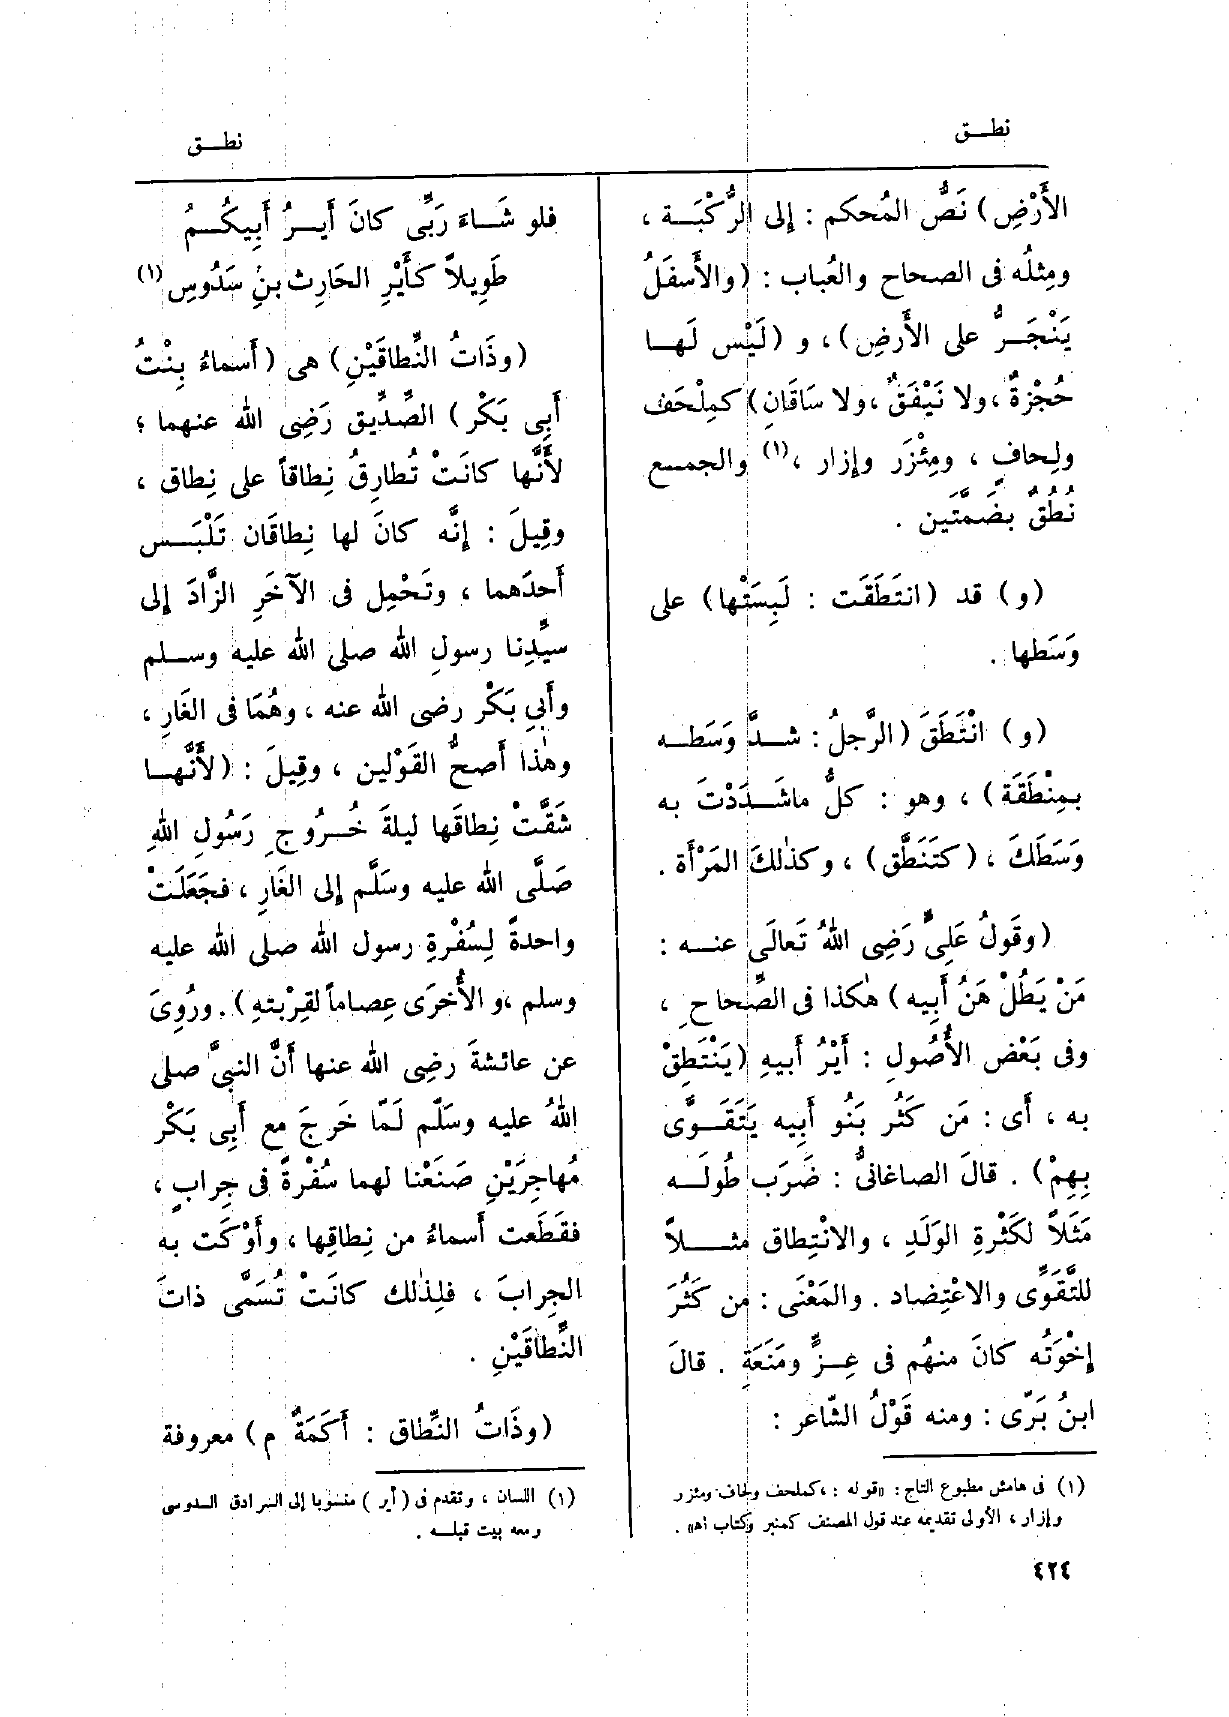 نطـــق
نطـــق
الأَرْضِ) نَصُّ المُحكم : إلى الرُّكْبَــة ،
ومِثلُه فى الصحاح والعُباب : (والأَسفَلُ
يَنْجَــرُّ على الأَرضِ)، و (لَيْس لَهــا
حُجْزةٌ ، ولا نَيْفَقٌ ، ولا سَاقَانِ) كمِلْحَف
ولِحافٍ ، ومِئْزَر وإزار ،(١) والجمــع
نُطُقٌ بضَمَّتَين .
(و) قد (انتَطَقَت : لَبِسَتْها) على
وَسَطها .
(و) انْتَطَقَ (الرَّجلُ : شــدَّ وَسَطــه
بمِنْطَقَة) ، وهو : كلُّ ماشَــدَدْتَ به
وَسَطَكَ ، (كتَنَطَّق) ، وكذٰلكَ المَرْأَة .
(وقَولُ عَلِىٍّ رَضِى اللهُ تَعالَى عنــه :
مَنْ يَطُلْ هَنُ أَبِيه) هٰكذا فى الصِّحاحِ ،
وفى بَعْض الأُصُولِ : أَيْرُ أَبيهِ (يَنْتَطِقْ
به ، أَى : مَن كَثُر بَنُو أَبِيه يَتَقَــوَّى
بِهِمْ) . قالَ الصاغانىُّ : ضَرَب طُولَــه
مَثَلاً لكَثْرةِ الوَلَدِ ، والانْتِطاق مثــلاً
للتَّقَوِّى والاعْتِضاد . والمَعْنَى : مَن كَثُرَ
إخْوَتُه كانَ منهُم فى عِــزٍّ ومَنَعَةٍ . قالَ
ابنُ بَرّى : ومنه قَوْلُ الشّاعر :
(١) فى هامش مطبوع التاج : «قوله : ، كملحف ولحاف ومئزر
وإزار ، الأولى تقديمه عند قول المصنف كمنبر وكتاب اه» .
٤٢٤
فلو شَــاءَ رَبِّى كانَ أَيــرُ أَبِيكُــمُ
طَوِيلاً كَأَيْرِ الحَارِث بنِ سَدُوسِ (١)
(وذَاتُ النِّطاقَيْنِ) هى (أَسماءُ بِنْتُ
أَبِى بَكْر) الصِّدِّيق رَضِى الله عنهما ؛
لأَنَّها كانَتْ تُطارِقُ نِطاقاً على نِطاق ،
وقِيلَ : إنَّه كانَ لها نِطاقَان تَلْبَــس
أَحدَهما ، وتَحْمِل فى الآخَرِ الزَّادَ إلى
سيِّدِنا رسولِ الله صلى الله عليه وســلم
وأَبِي بَكْر رضى الله عنه ، وهُمَا فى الغَارِ ،
وهٰذا أَصحُّ القَوْلين ، وقِيلَ : (لأَنَّهــا
شَقَّتْ نِطاقَها ليلةَ خُــرُوجِ رَسُولِ اللهِ
صَلَّى الله عليه وسَلَّم إلى الغَارِ ، فجَعَلَتْ
واحدةً لِسُفْرةِ رسول الله صلى الله عليه
وسلم ، و الأُخرَى عِصاماً لقِرْبتهِ) . ورُوِىَ
عن عائشةَ رَضِى الله عنها أَنَّ النبىَّ صلى
اللهُ عليه وسَلّم لَمّا خَرجَ مع أَبِى بَكْر
مُهاجِرَيْنِ صَنَعْنا لهما سُفْرةً فى جِرابٍ ،
فقَطَعت أَسماءُ من نِطاقِها ، وأَوْكَت به
الجِرابَ ، فلِذٰلك كانَتْ تُسَمَّى ذاتَ
النِّطاقَيْنِ .
(وذَاتُ النِّطاق : أَكَمَةٌ م) معروفة
(١) اللسان ، وتقدم فى (أير) منسوبا إلى السرادق السدوسى
ومعه بيت قبلــه .